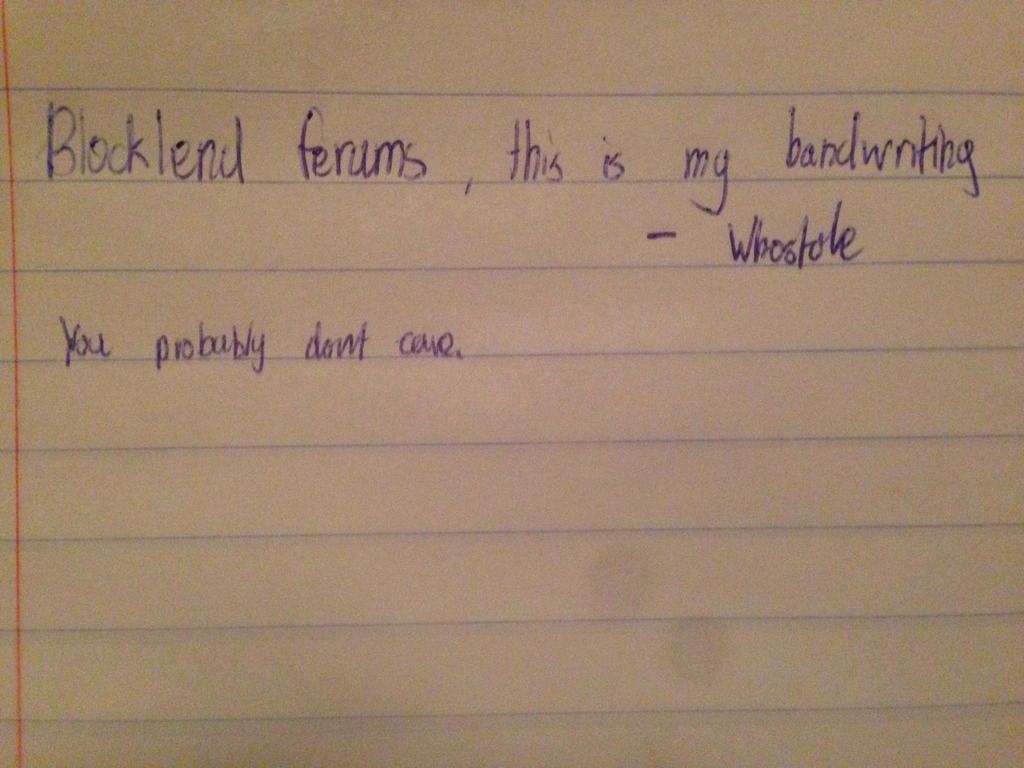 Blockland forums, this is my handwriting
- Whostole
You probably dont care.